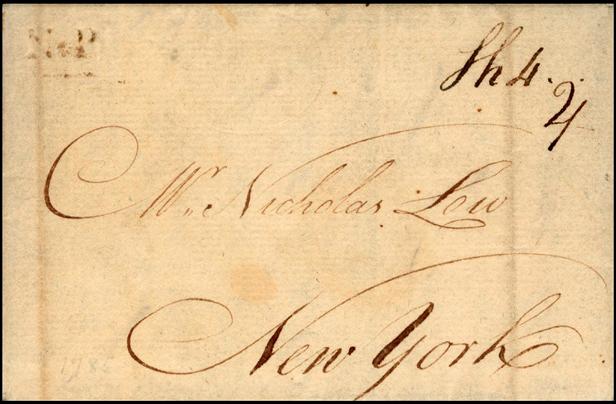 N.P
Sh 4.
24
Mr. Nicholas Low
New York